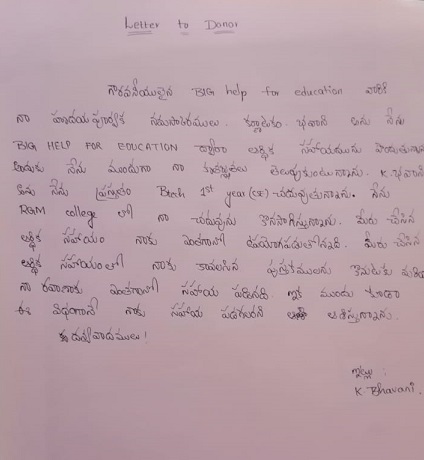 Letter to Donor
గౌరవనీయులైన BIG help for education వారికి
నా హృదయపూర్వక నమస్కారములు. భవాని అను నేను
BIG HELP FOR EDUCATION ద్వారా ఆర్థిక సహాయమును పొందుతున్నాను
అందుకు నేను ముందుగా నా కృతజ్ఞతలు తెలుపుకుంటున్నాను. K. భవాని
అను నేను ప్రస్తుతం Btech 1st year (CSE) చదువుతున్నాను. నేను
RGM college లో నా చదువును కొనసాగిస్తున్నాను. మీరు చేసిన
ఆర్థిక సహాయం నాకు ఎంతగానో ఉపయోగపడుతోన్నది. మీరు చేసిన
ఆర్థిక సహాయంతో నాకు కావలసిన పుస్తకములను కొనుటకు మరియు
నా రవాణాకు ఎంతగానో సహాయ పడినది. ఇక ముందు కూడా
ఈ విధంగానే నాకు సహాయ పడగలరని ఆశిస్తున్నాను.
ధన్యవాదములు!
ఇట్లు :
K. Bhavani.